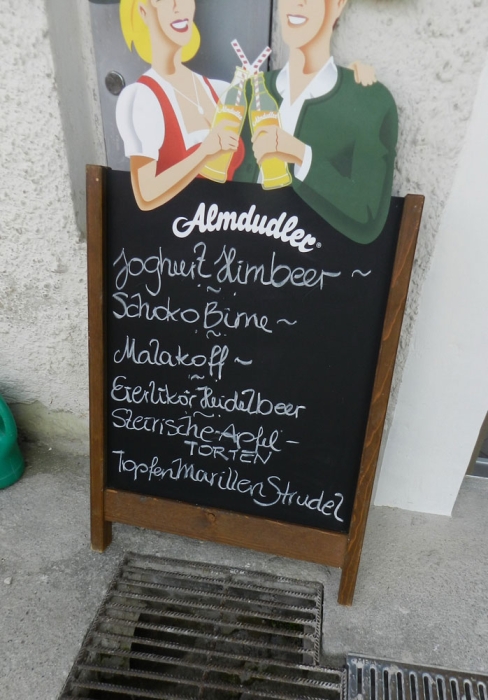 Almdudler®
Joghurt Himbeer ~
Schoko Birne ~
Malakoff ~
Eierlikör Heidelbeer
Steirische-Apfel-
TORTEN
TopfenMarillenStrudel